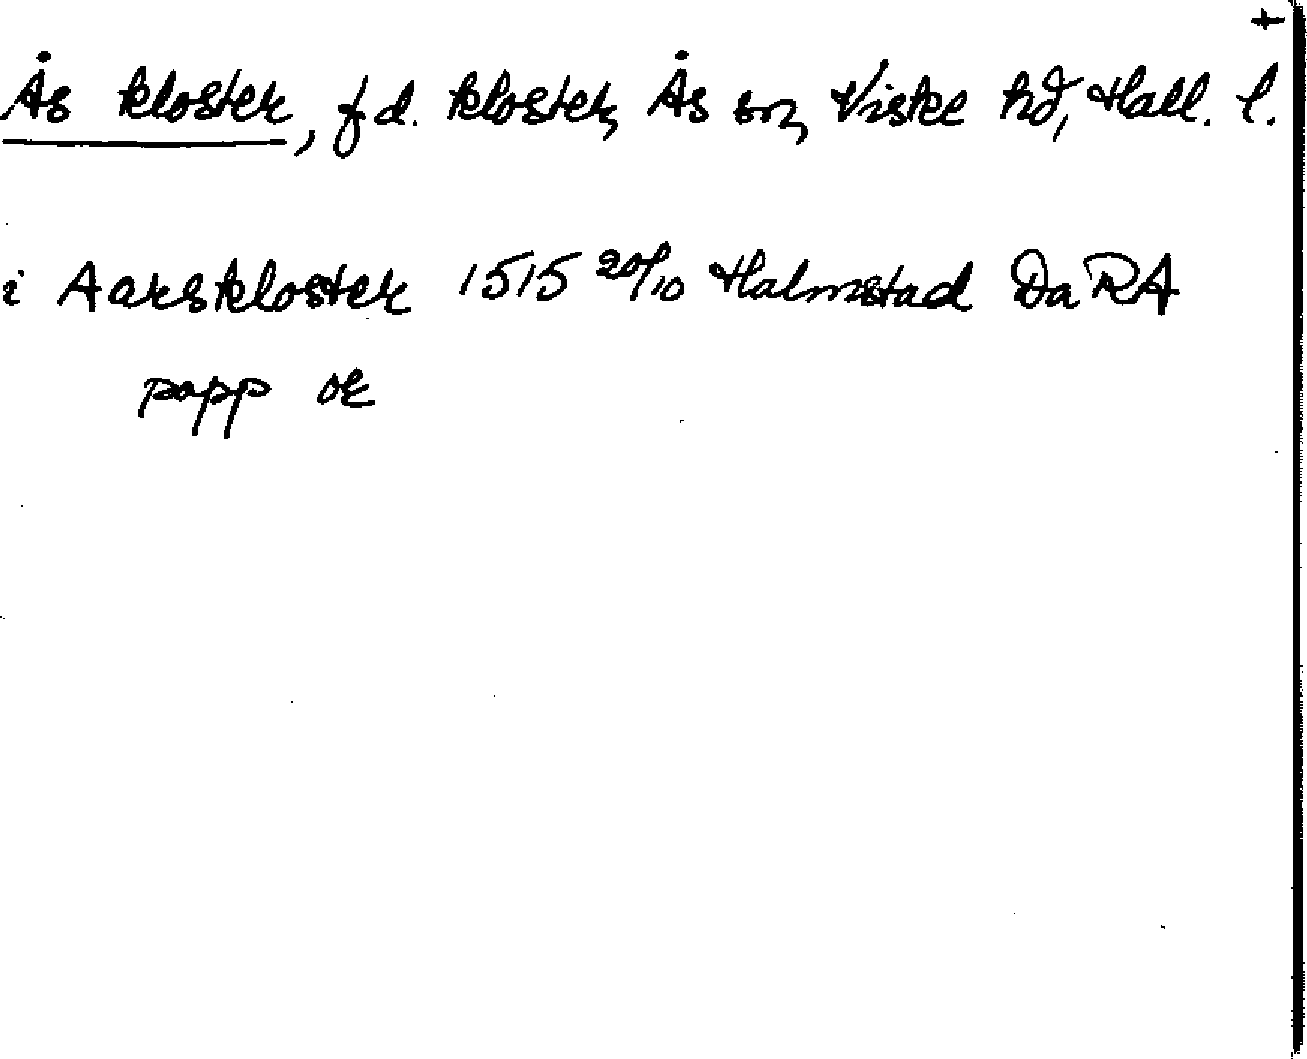 +
Ås kloster, f d. kloster, Ås sn, Viske hd, Hall. l.
i Aarskloster 1515 20/10 Halmstad DaRA
papp or